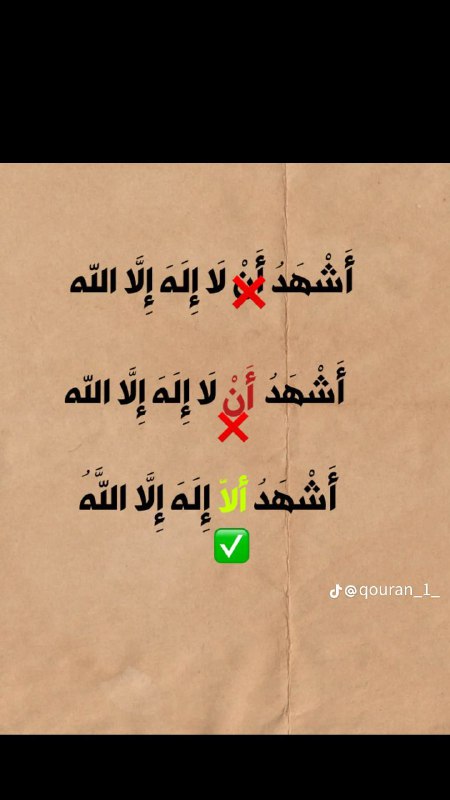 أَشْهَدُ أَنْ لَا إِلَهَ إِلَّا اللّه
أَشْهَدُ أَنْ لَا إِلَهَ إِلَّا اللّه
أَشْهَدُ ألاّ إِلَهَ إِلَّا اللَّهُ
@qouran_1_